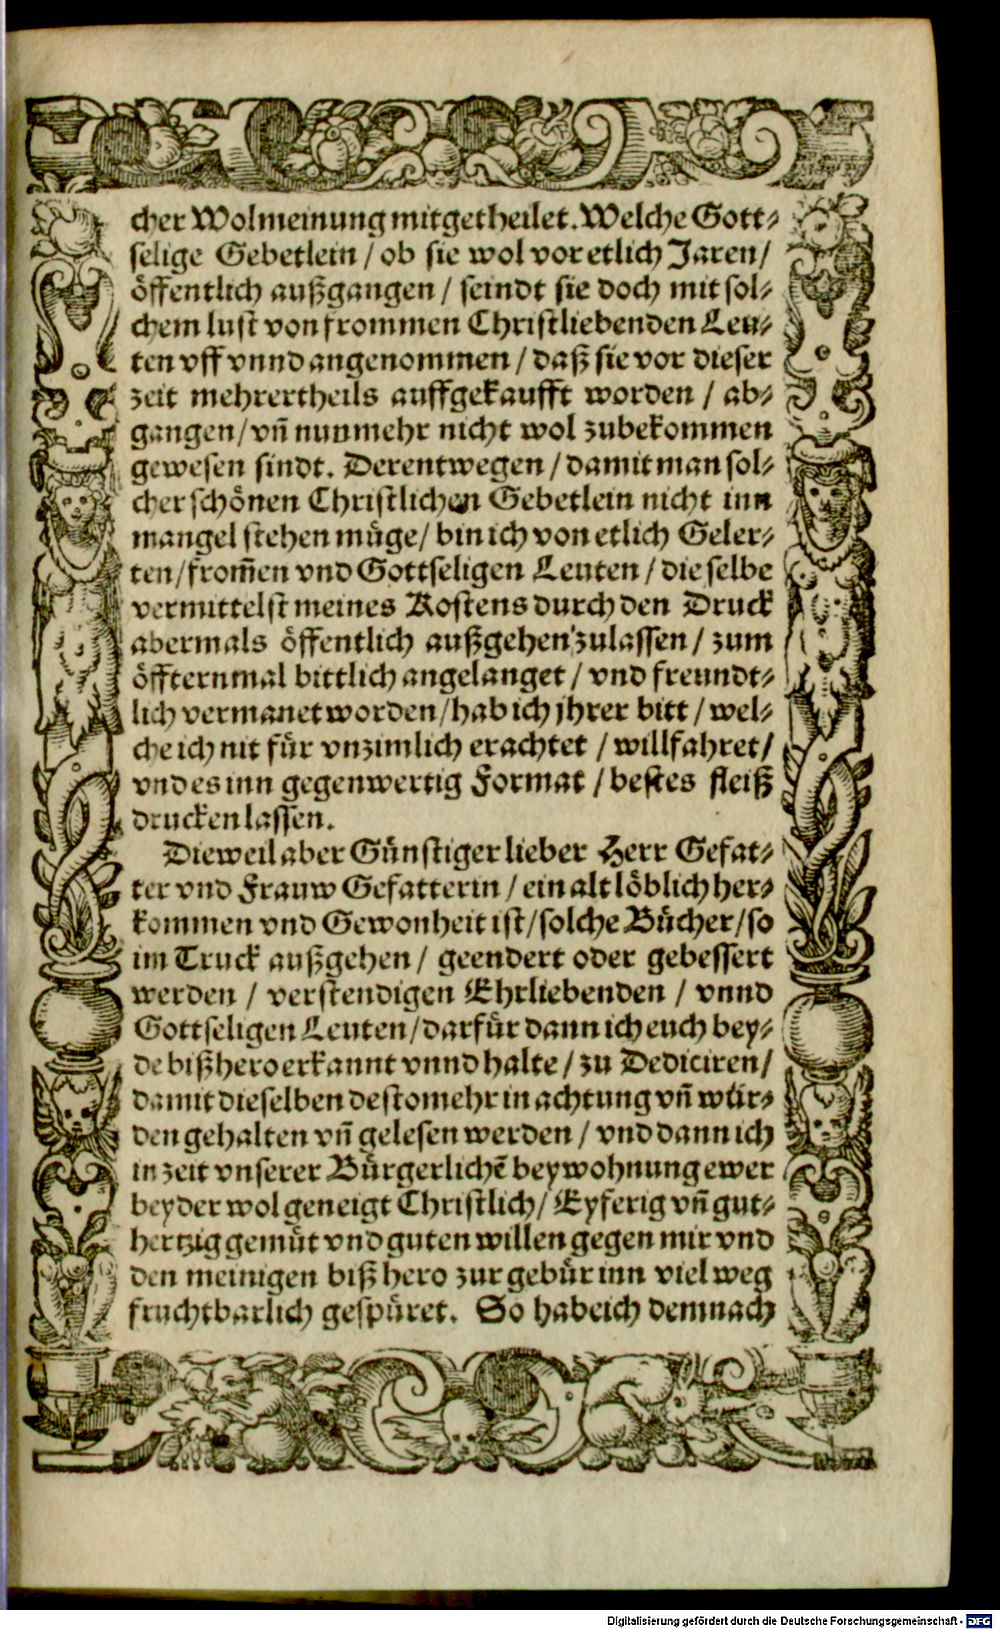 cher Wolmeinung mitgetheilet. Welche Gott⸗
selige Gebetlein / ob sie wol vor etlich Jaren /
öffentlich außgangen / seindt sie doch mit sol⸗
chem lust von frommen Christliebenden Leu⸗
ten vff vnnd angenommen / daß sie vor dieser
zeit mehrertheils auffgekaufft worden / ab⸗
gangen / vñ nunmehr nicht wol zubekommen
gewesen sindt. Derentwegen / damit man sol⸗
cher schönen Christlichen Gebetlein nicht inn
mangel stehen müge / bin ich von etlich Geler⸗
ten / from̃en vnd Gottseligen Leuten / die selbe
vermittelst meines Kostens durch den Druck
abermals öffentlich außgehen zulassen / zum
öffternmal bittlich angelanget / vnd freundt⸗
lich vermanet worden / hab ich jhrer bitt / wel⸗
che ich nit für vnzimlich erachtet / willfahret /
vnd es inn gegenwertig Format / bestes fleiß
drucken lassen.
Dieweil aber Günstiger lieber Herr Gefat⸗
ter vnd Frauw Gefatterin / ein alt löblich her⸗
kommen vnd Gewonheit ist / solche Bücher / so
im Truck außgehen / geendert oder gebessert
werden / verstendigen Ehrliebenden / vnnd
Gottseligen Leuten / darfür dann ich euch bey⸗
de bißhero erkannt vnnd halte / zu Dediciren /
damit dieselben desto mehr in achtung vñ wür⸗
den gehalten vñ gelesen werden / vnd dann ich
in zeit vnserer Bürgerlichē beywohnung ewer
beyder wol geneigt Christlich / Eyferig vñ gut⸗
hertzig gemüt vnd guten willen gegen mir vnd
den meinigen biß hero zur gebür inn viel weg
fruchtbarlich gespüret. So habe ich demnach
Digitalisierung gefördert durch die Deutsche Forschungsgemeinschaft - DFG